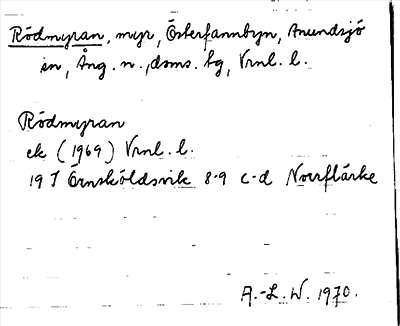 Rödmyran, myr, Österfannbyn, Anundsjö
sn, Ång. n., doms. tg, Vrnl. l.
Rödmyran
ek (1969) Vrnl. l.
19 I Örnsköldsvik 8-9 c-d Norrflärke
A.-L. W. 1970.